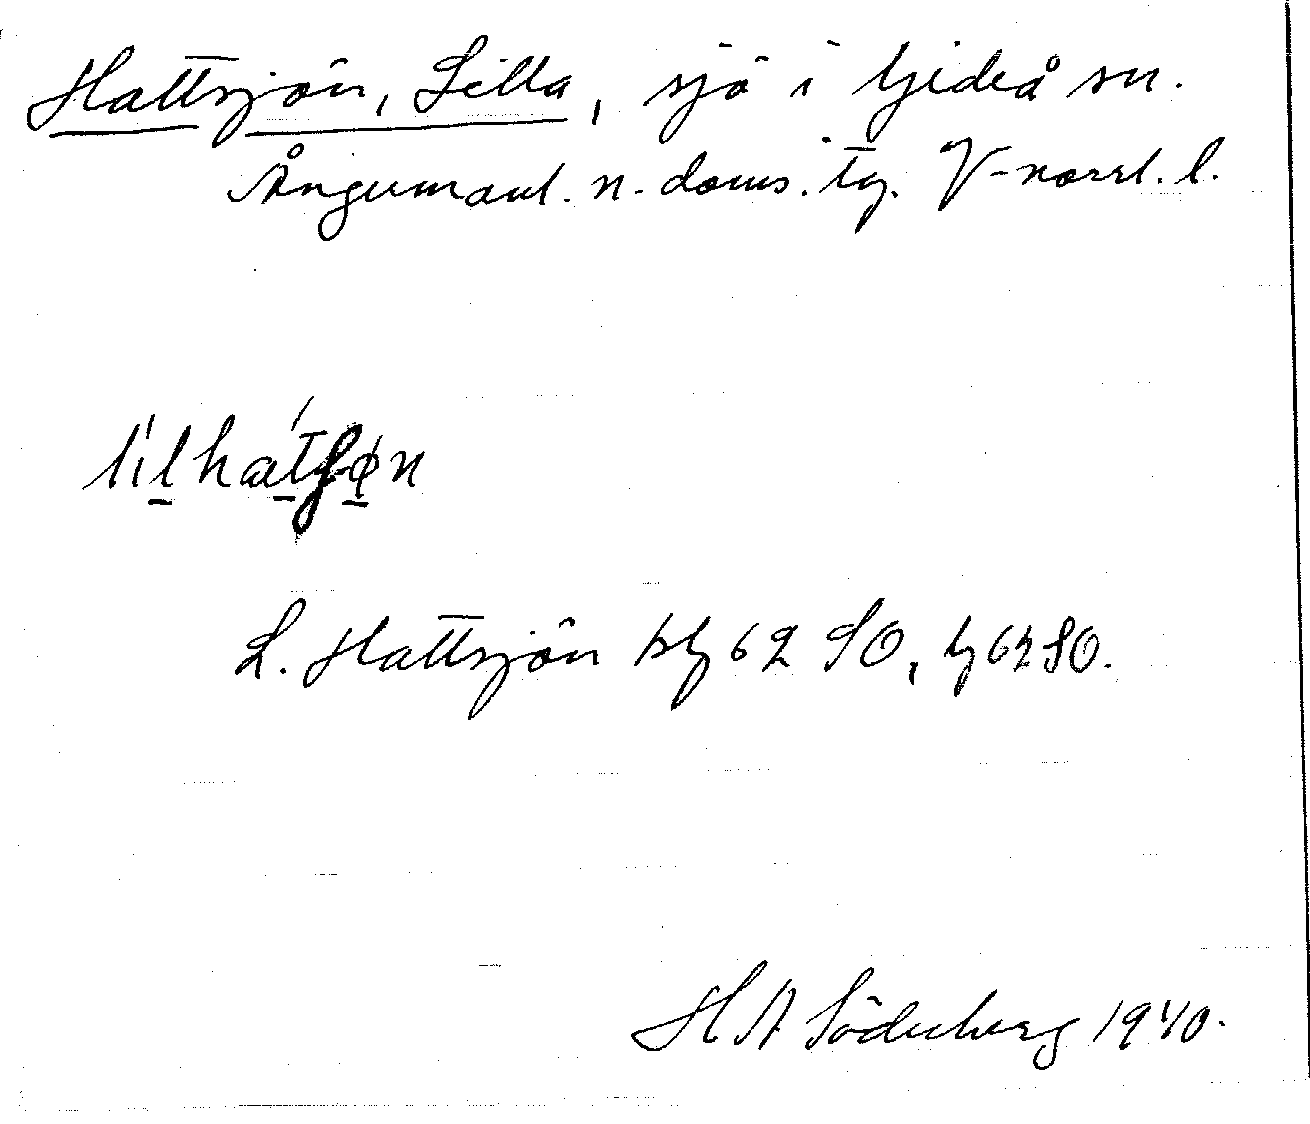 Hattsjön, Lilla, sjö i Gideå sn.
Ångermanl. n. doms. tg. V-norrl. l.
lilhatʃøn
L. Hattsjön 62 SO, 62 SO.
H A Söderberg 1940.